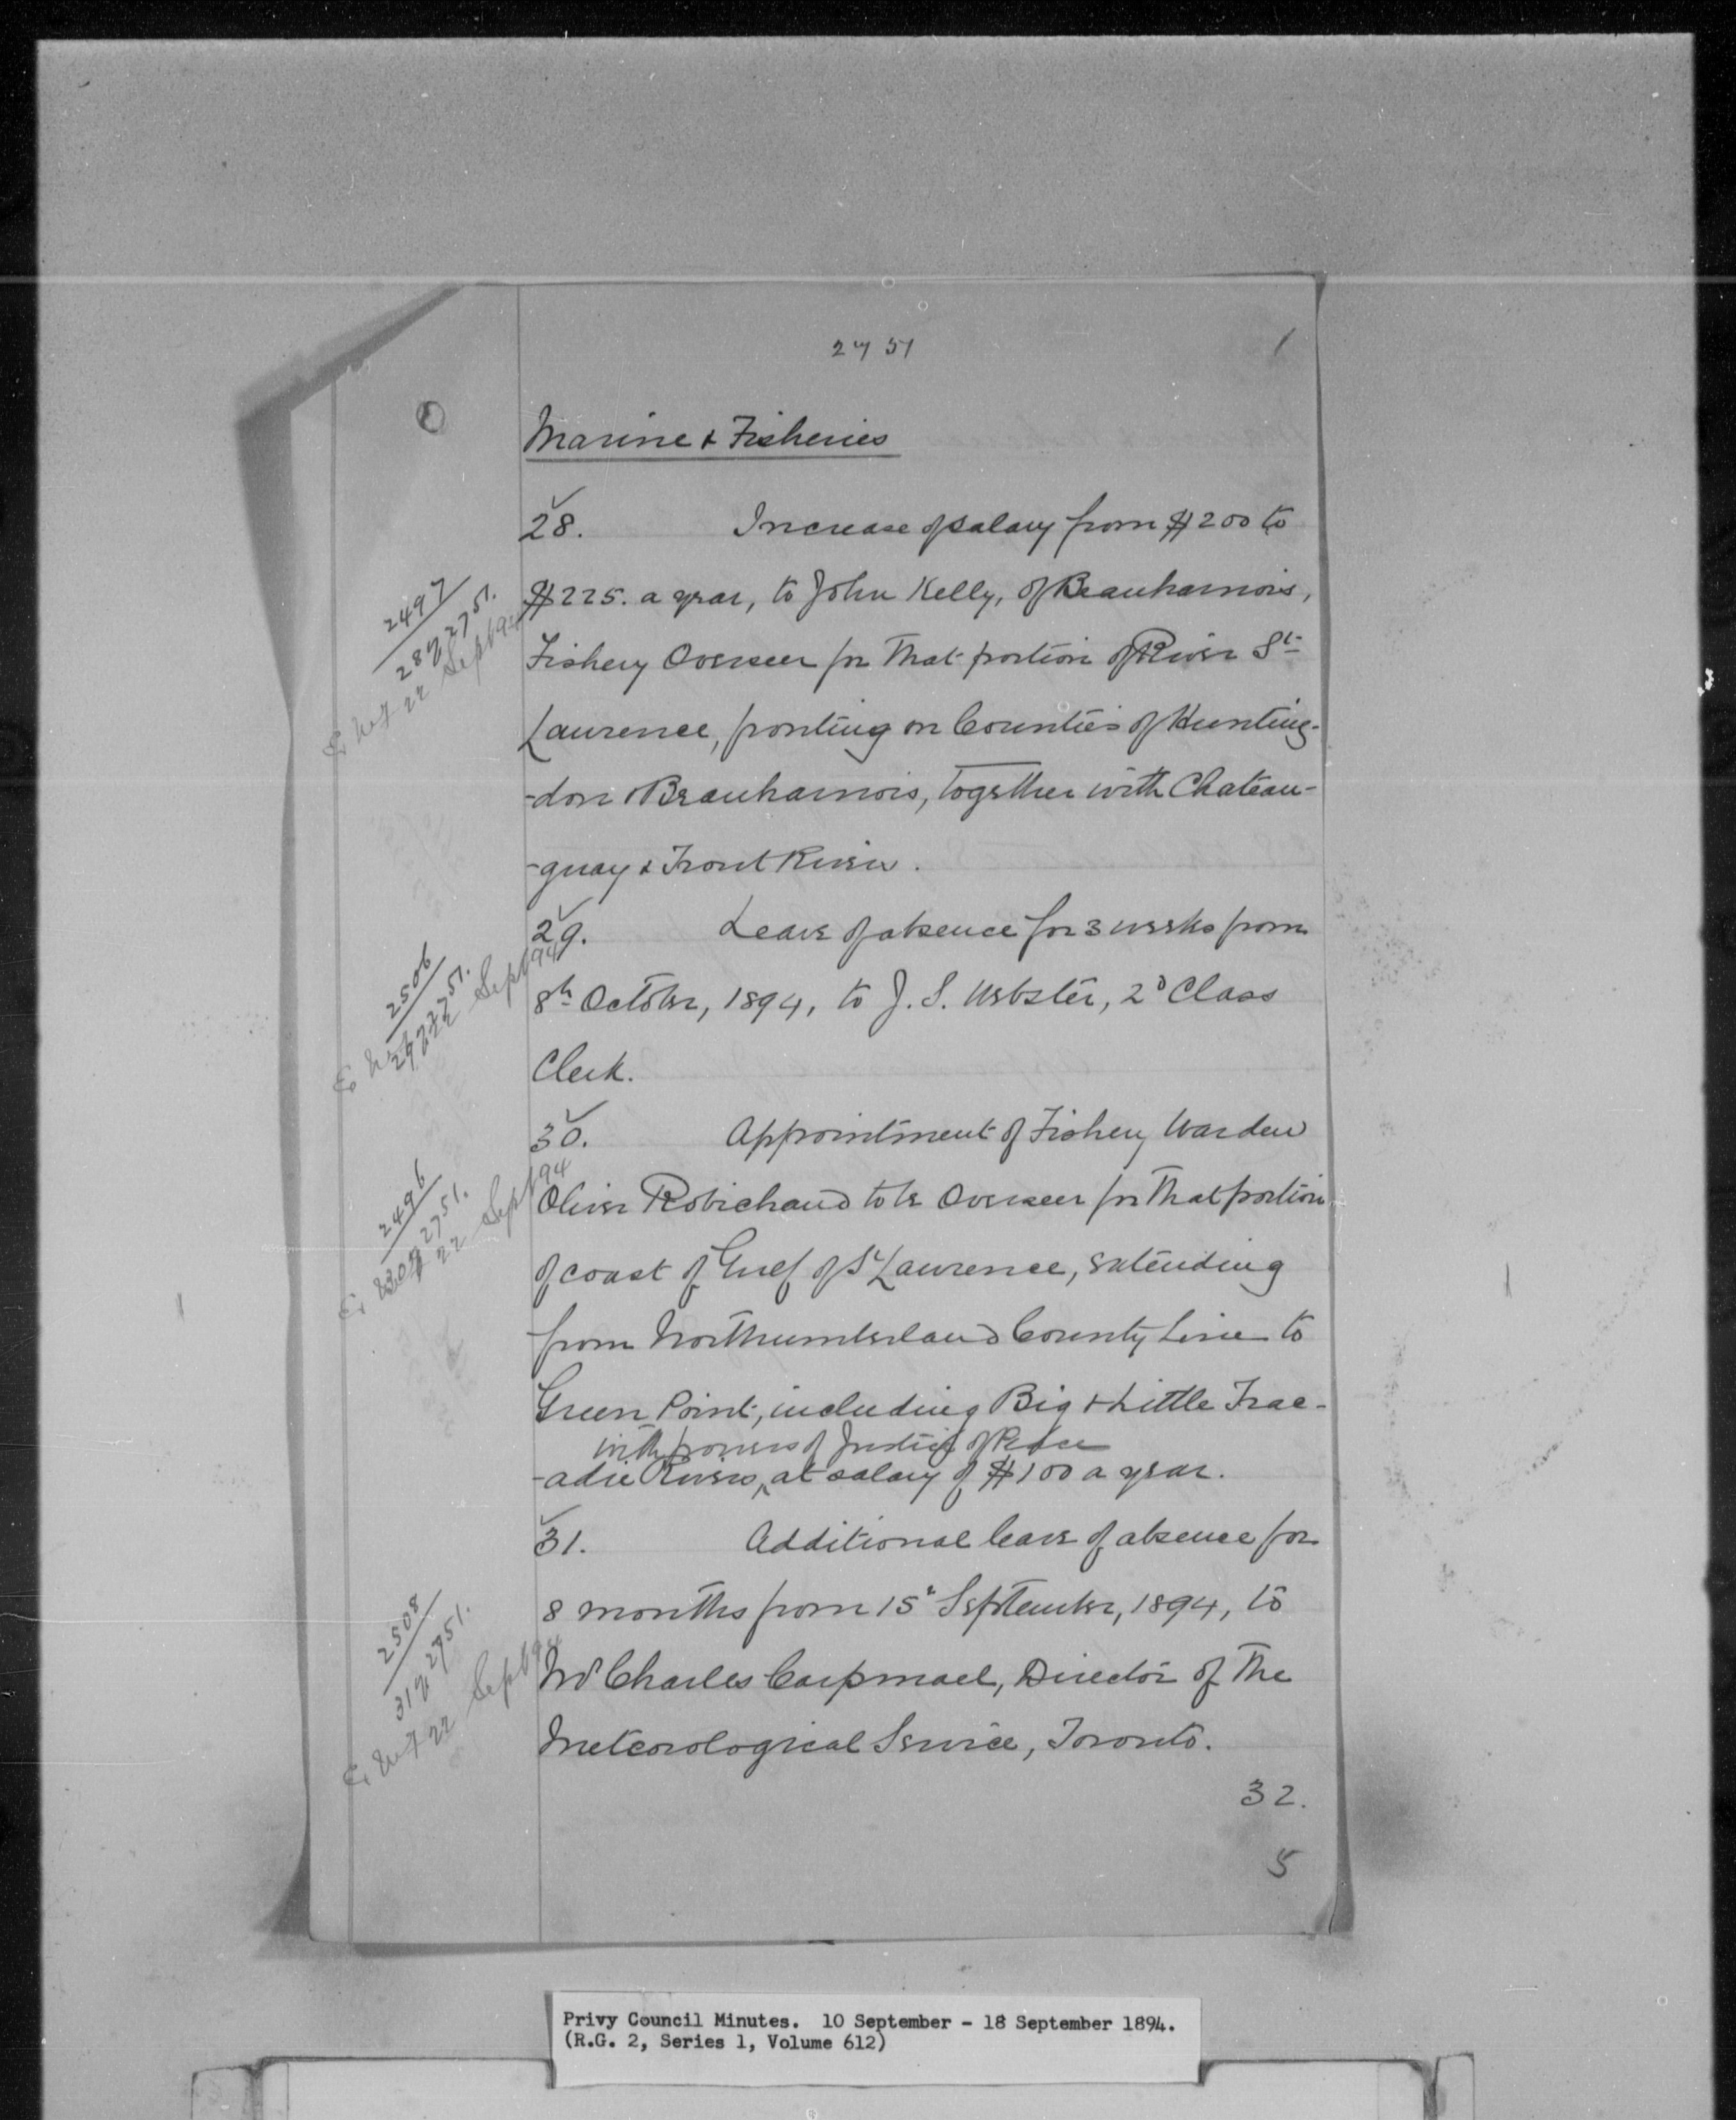 2751
1
Marine & Fisheries
28. Increase of salary from $200 to
$225. a year, to John Kelly, of Beauharnois,
Fishery Overseer for that portion of River St
Lawrence, fronting on Counties of Hunting-
-don & Beauharnois, together with Chateau-
-guay & Trout River.
2497
28 of 2751.
22 Sept 94
29. Leave of absence for 3 weeks from
8th October, 1894, to J. S. Webster, 2d Class
Clerk.
2506
29 of 2751.
22 Sept 94
30. Appointment of Fishery Warden
Oliver Robichaud to be Overseer for that portion
of coast of Gulf of St Lawrence, extending
from Northumberland County Line to
Green Point, including Big & Little Trac-
with powers of Justice of Peace
-adie Rivers, at salary of $100 a year.
2496
30 of 2751.
22 Sept 94
31. Additional leave of absence for
8 months from 15th September, 1894, to
Mr Charles Carpmael, Director of the
Meteorological Service, Toronto.
2508
31 of 2751.
22 Sept 94
32.
5
Privy Council Minutes. 10 September - 18 September 1894.
(R.G. 2, Series 1, Volume 612)